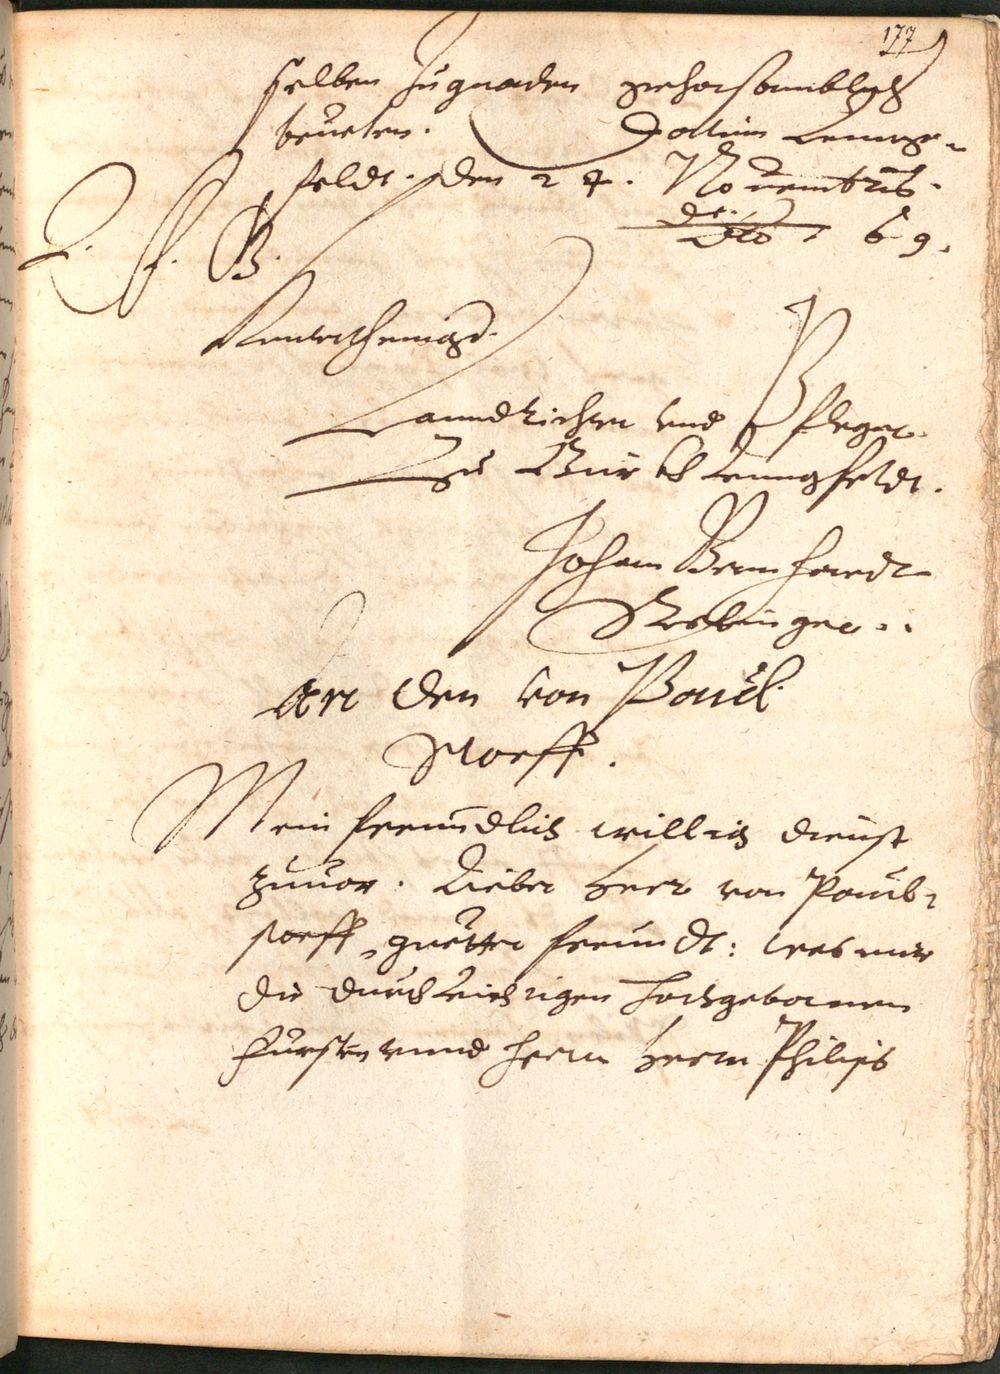 177
selben zu gnaden gehorsamblich
beuelen. Datum Lenng-
feldt. den 24. Nouembris.
de. Ao 69.
E. F. G.
Vnnterthenigr.
Lanndtrichter vnd Pfleger
Zu Burckhlenngfeldt.
Johann Bernhardt
Reblinger.
An den von Paul
storff.
Mein freundtlich willig dienst
zuuor. Lieber Herr von Pauls-
storff, guetter freundt: was mir
die durchleichtigen hochgebornnen
Fursten vnnd herrn Herrn Philips